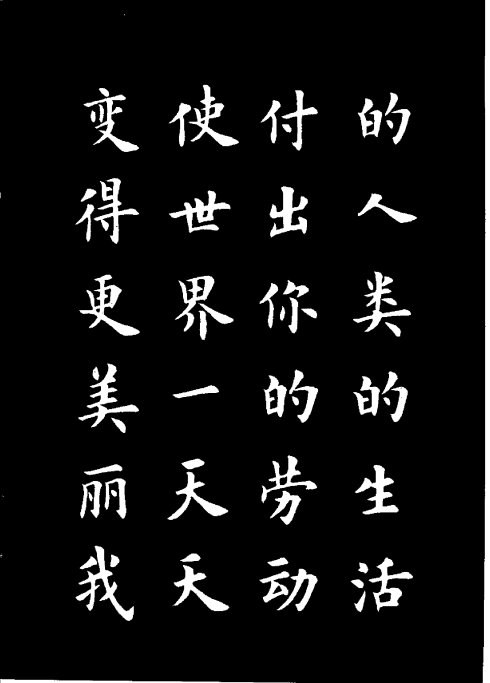 的人类的生活
付出你的劳动
使世界一天天
变得更美丽我